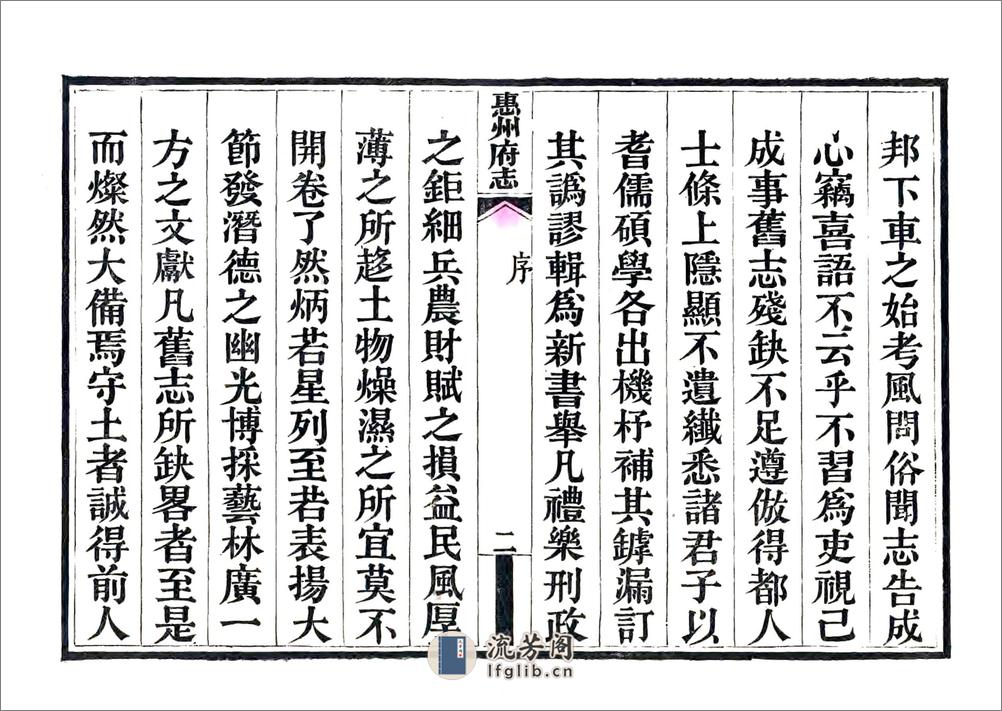 邦下車之始考風問俗聞志告成
心竊喜語不云乎不習爲吏視已
成事舊志殘缺不足遵倣得都人
士條上隱顯不遺纖悉諸君子以
耆儒碩學各出機杼補其罅漏訂
其譌謬輯爲新書舉凡禮樂刑政
惠州府志
序
二
之鉅細兵農財賦之損益民風厚
薄之所趍土物燥濕之所宜莫不
開卷了然炳若星列至若表揚大
節發潛德之幽光博採藝林廣一
方之文獻凡舊志所缺畧者至是
而燦然大備焉守土者誠得前人
流芳阁
lfglib.cn